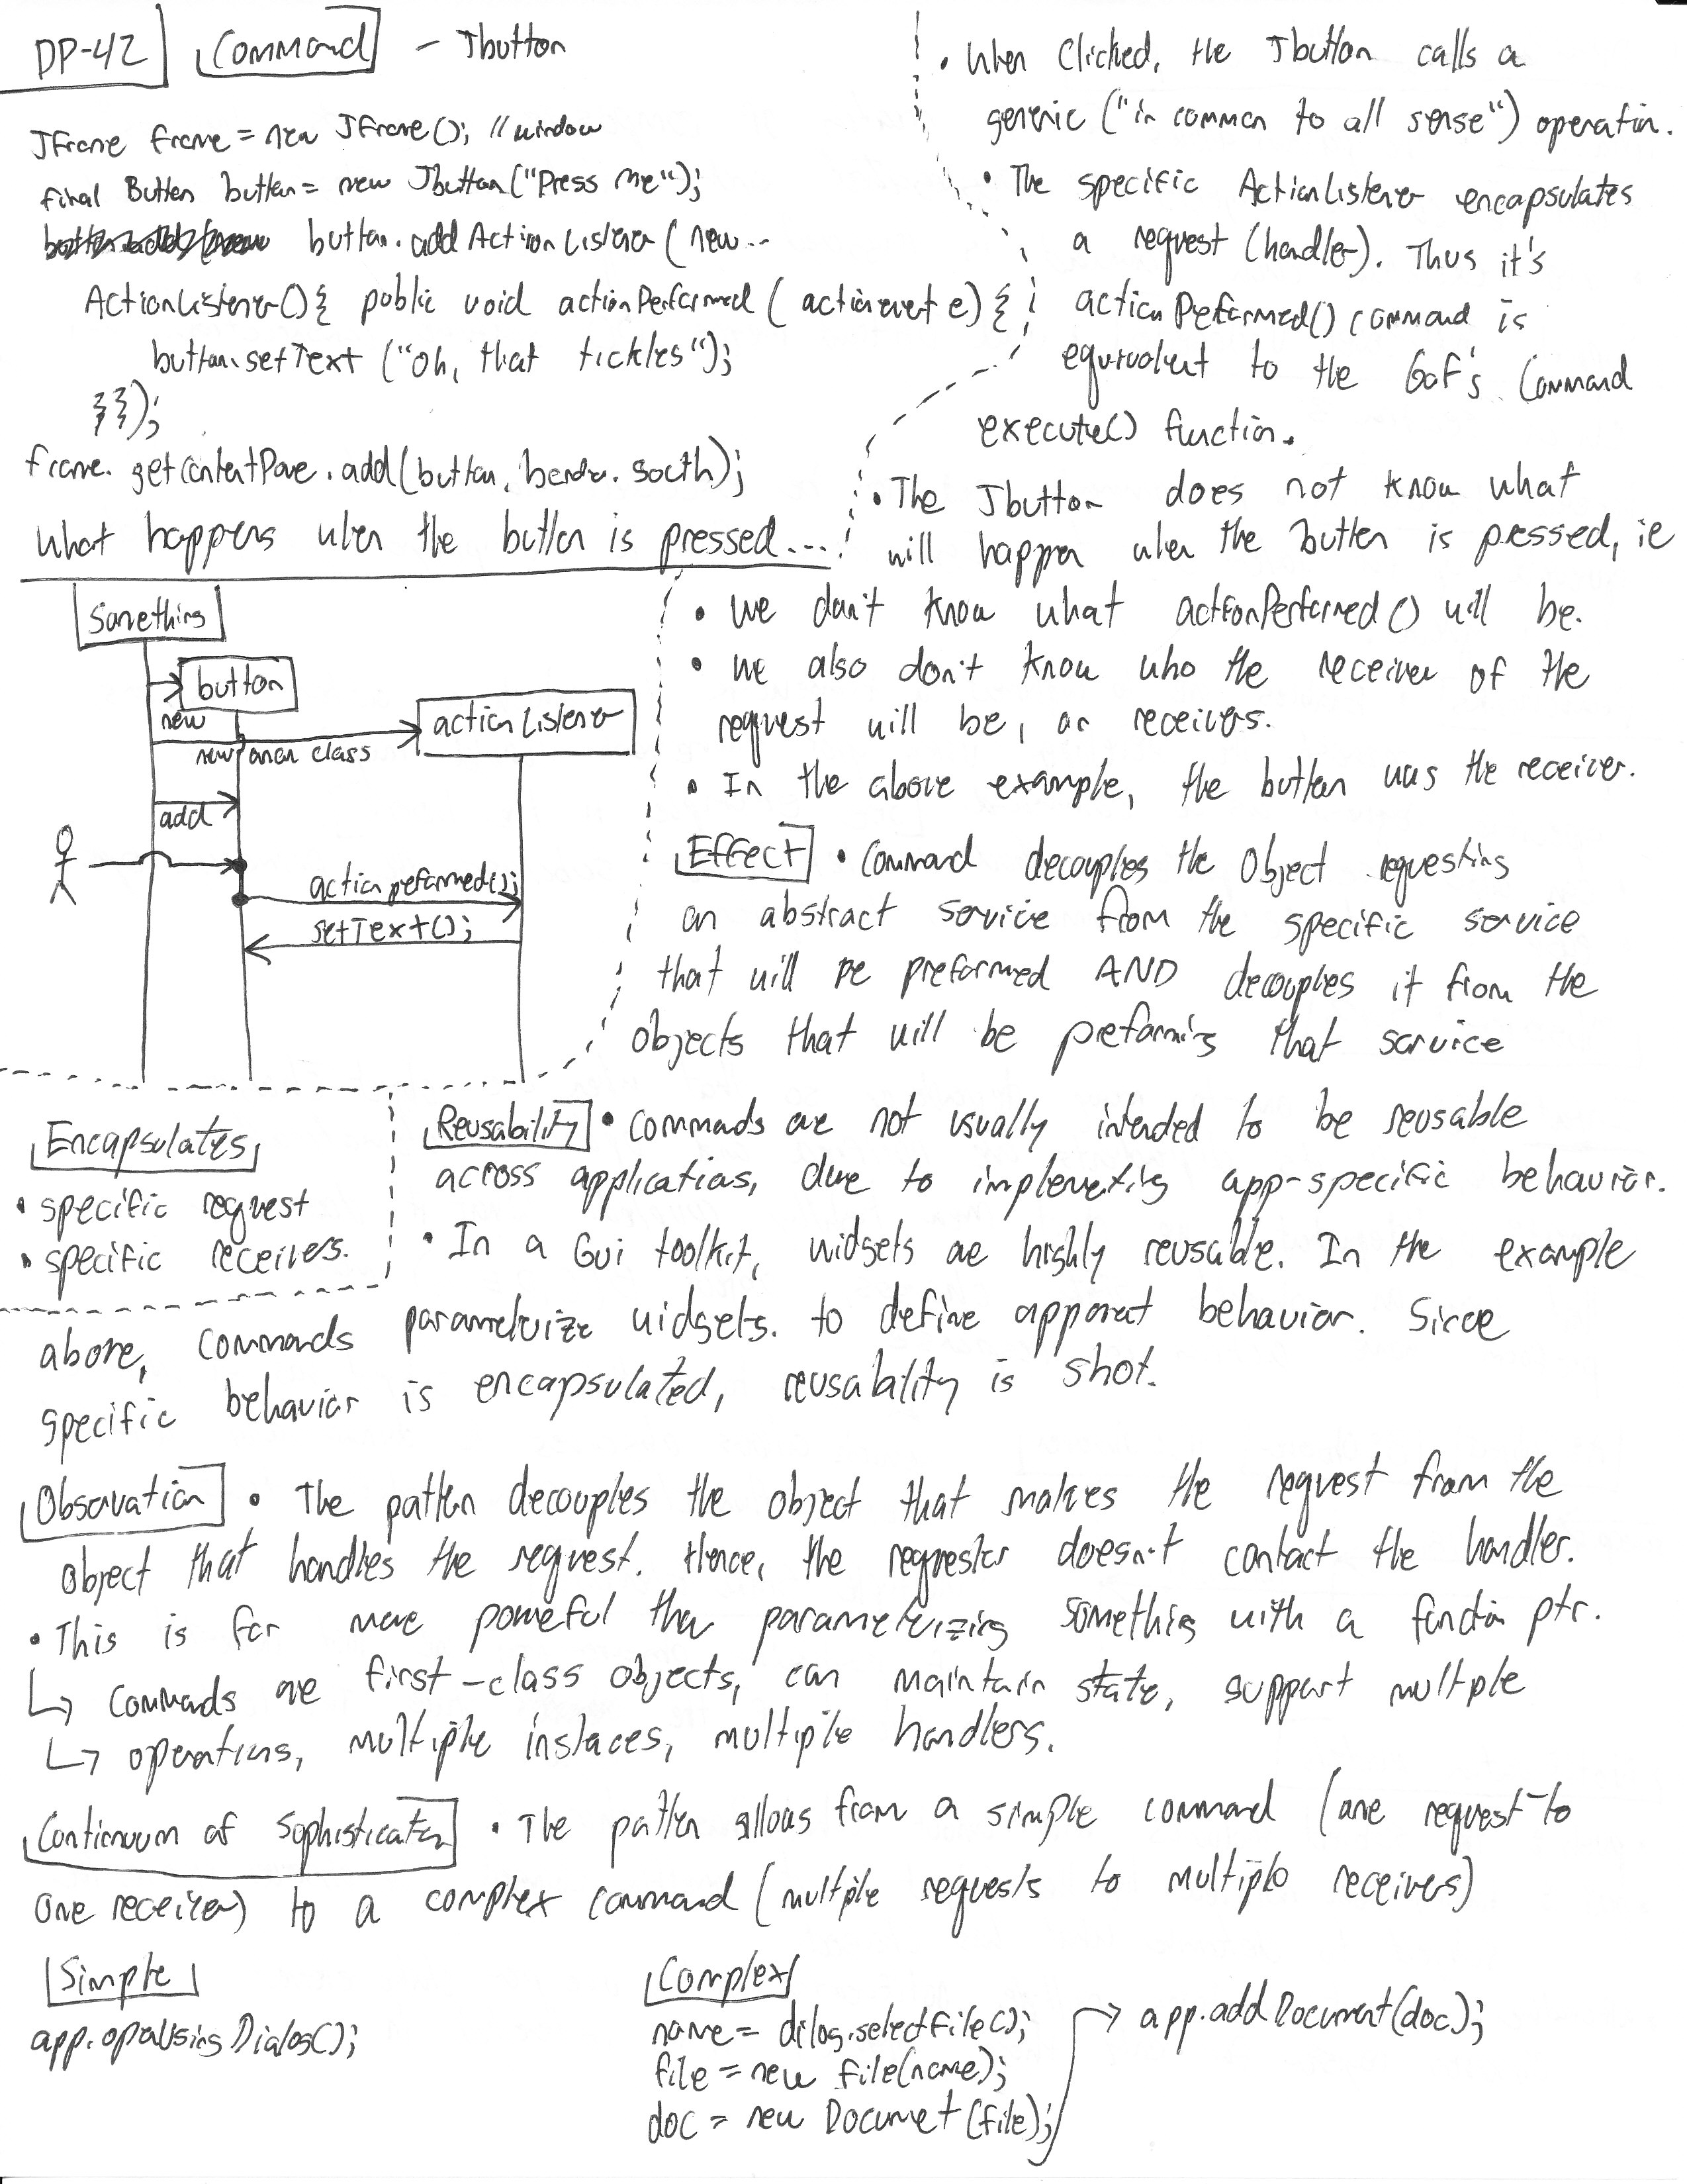 DP-42 Command - Jbutton
JFrame frame = new JFrame(); //window
final Button button = new Jbutton("Press Me");
button.addActionListener(new...
ActionListener(){ public void actionPerformed(actionevent e){
button.setText("Oh, that tickles");
}});
frame.getContentPane.add(button, border.south);
What happens when the button is pressed...
Something
button
new
actionListener
new anon class
add
actionpreformed();
setText();
• When Clicked, the Jbutton calls a
generic ("in common to all sense") operation.
• The specific ActionListener encapsulates
a request (handler). Thus it's
actionPreformed() command is
equivalent to the GoF's Command
execute() function.
• The Jbutton does not know what
will happen when the button is pressed, ie
• we don't know what actionPerformed() will be.
• we also don't know who the receiver of the
request will be, or receivers.
• In the above example, the button was the receiver.
Effect • Command decouples the Object requesting
an abstract service from the specific service
that will be preformed AND decouples it from the
objects that will be preforming that service
Encapsulates
• specific request
• specific receivers.
Reusability • Commands are not usually intended to be reusable
across applications, due to implementing app-specific behavior.
• In a Gui toolkit, widgets are highly reusable. In the example
above, commands parameterize widgets. to define apparent behavior. Since
specific behavior is encapsulated, reusability is shot.
Observation • The pattern decouples the object that makes the request from the
object that handles the request. Hence, the requester doesn't contact the handler.
• This is far more powerful than parameterizing something with a function ptr.
↳ Commands are first-class objects, can maintain state, support multiple
↳ operations, multiple instances, multiple handlers.
Continuum of Sophistication • The pattern allows from a simple command (one request to
one receiver) to a complex command (multiple requests to multiple receivers)
Simple
app.openUsingDialog();
Complex
name = dilog.selectFile();
file = new File(name);
doc = new Document(file);
→ app.addDocument(doc);